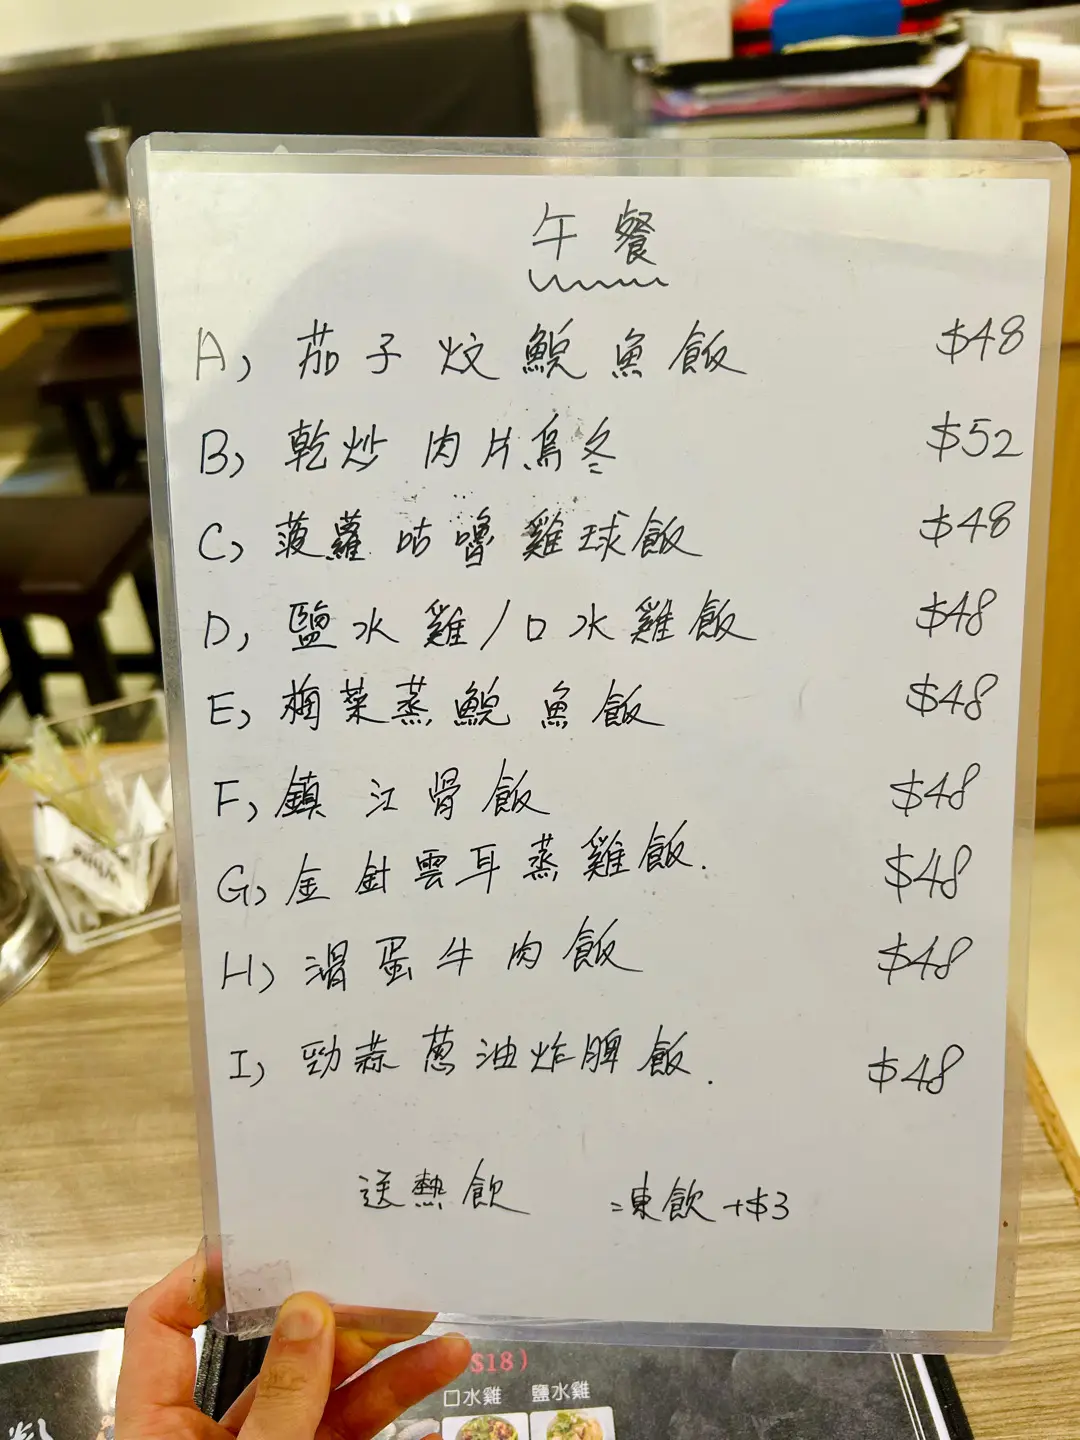 午餐
A, 茄子炆鯇魚飯 $48
B, 乾炒肉片烏冬 $52
C, 菠蘿咕嚕雞球飯 $48
D, 鹽水雞/口水雞飯 $48
E, 梅菜蒸鯇魚飯 $48
F, 鎮江骨飯 $48
G, 金針雲耳蒸雞飯. $48
H, 滑蛋牛肉飯 $48
I, 勁蒜蔥油炸脾飯. $48
送熱飲 凍飲+$3
$18)
口水雞 鹽水雞